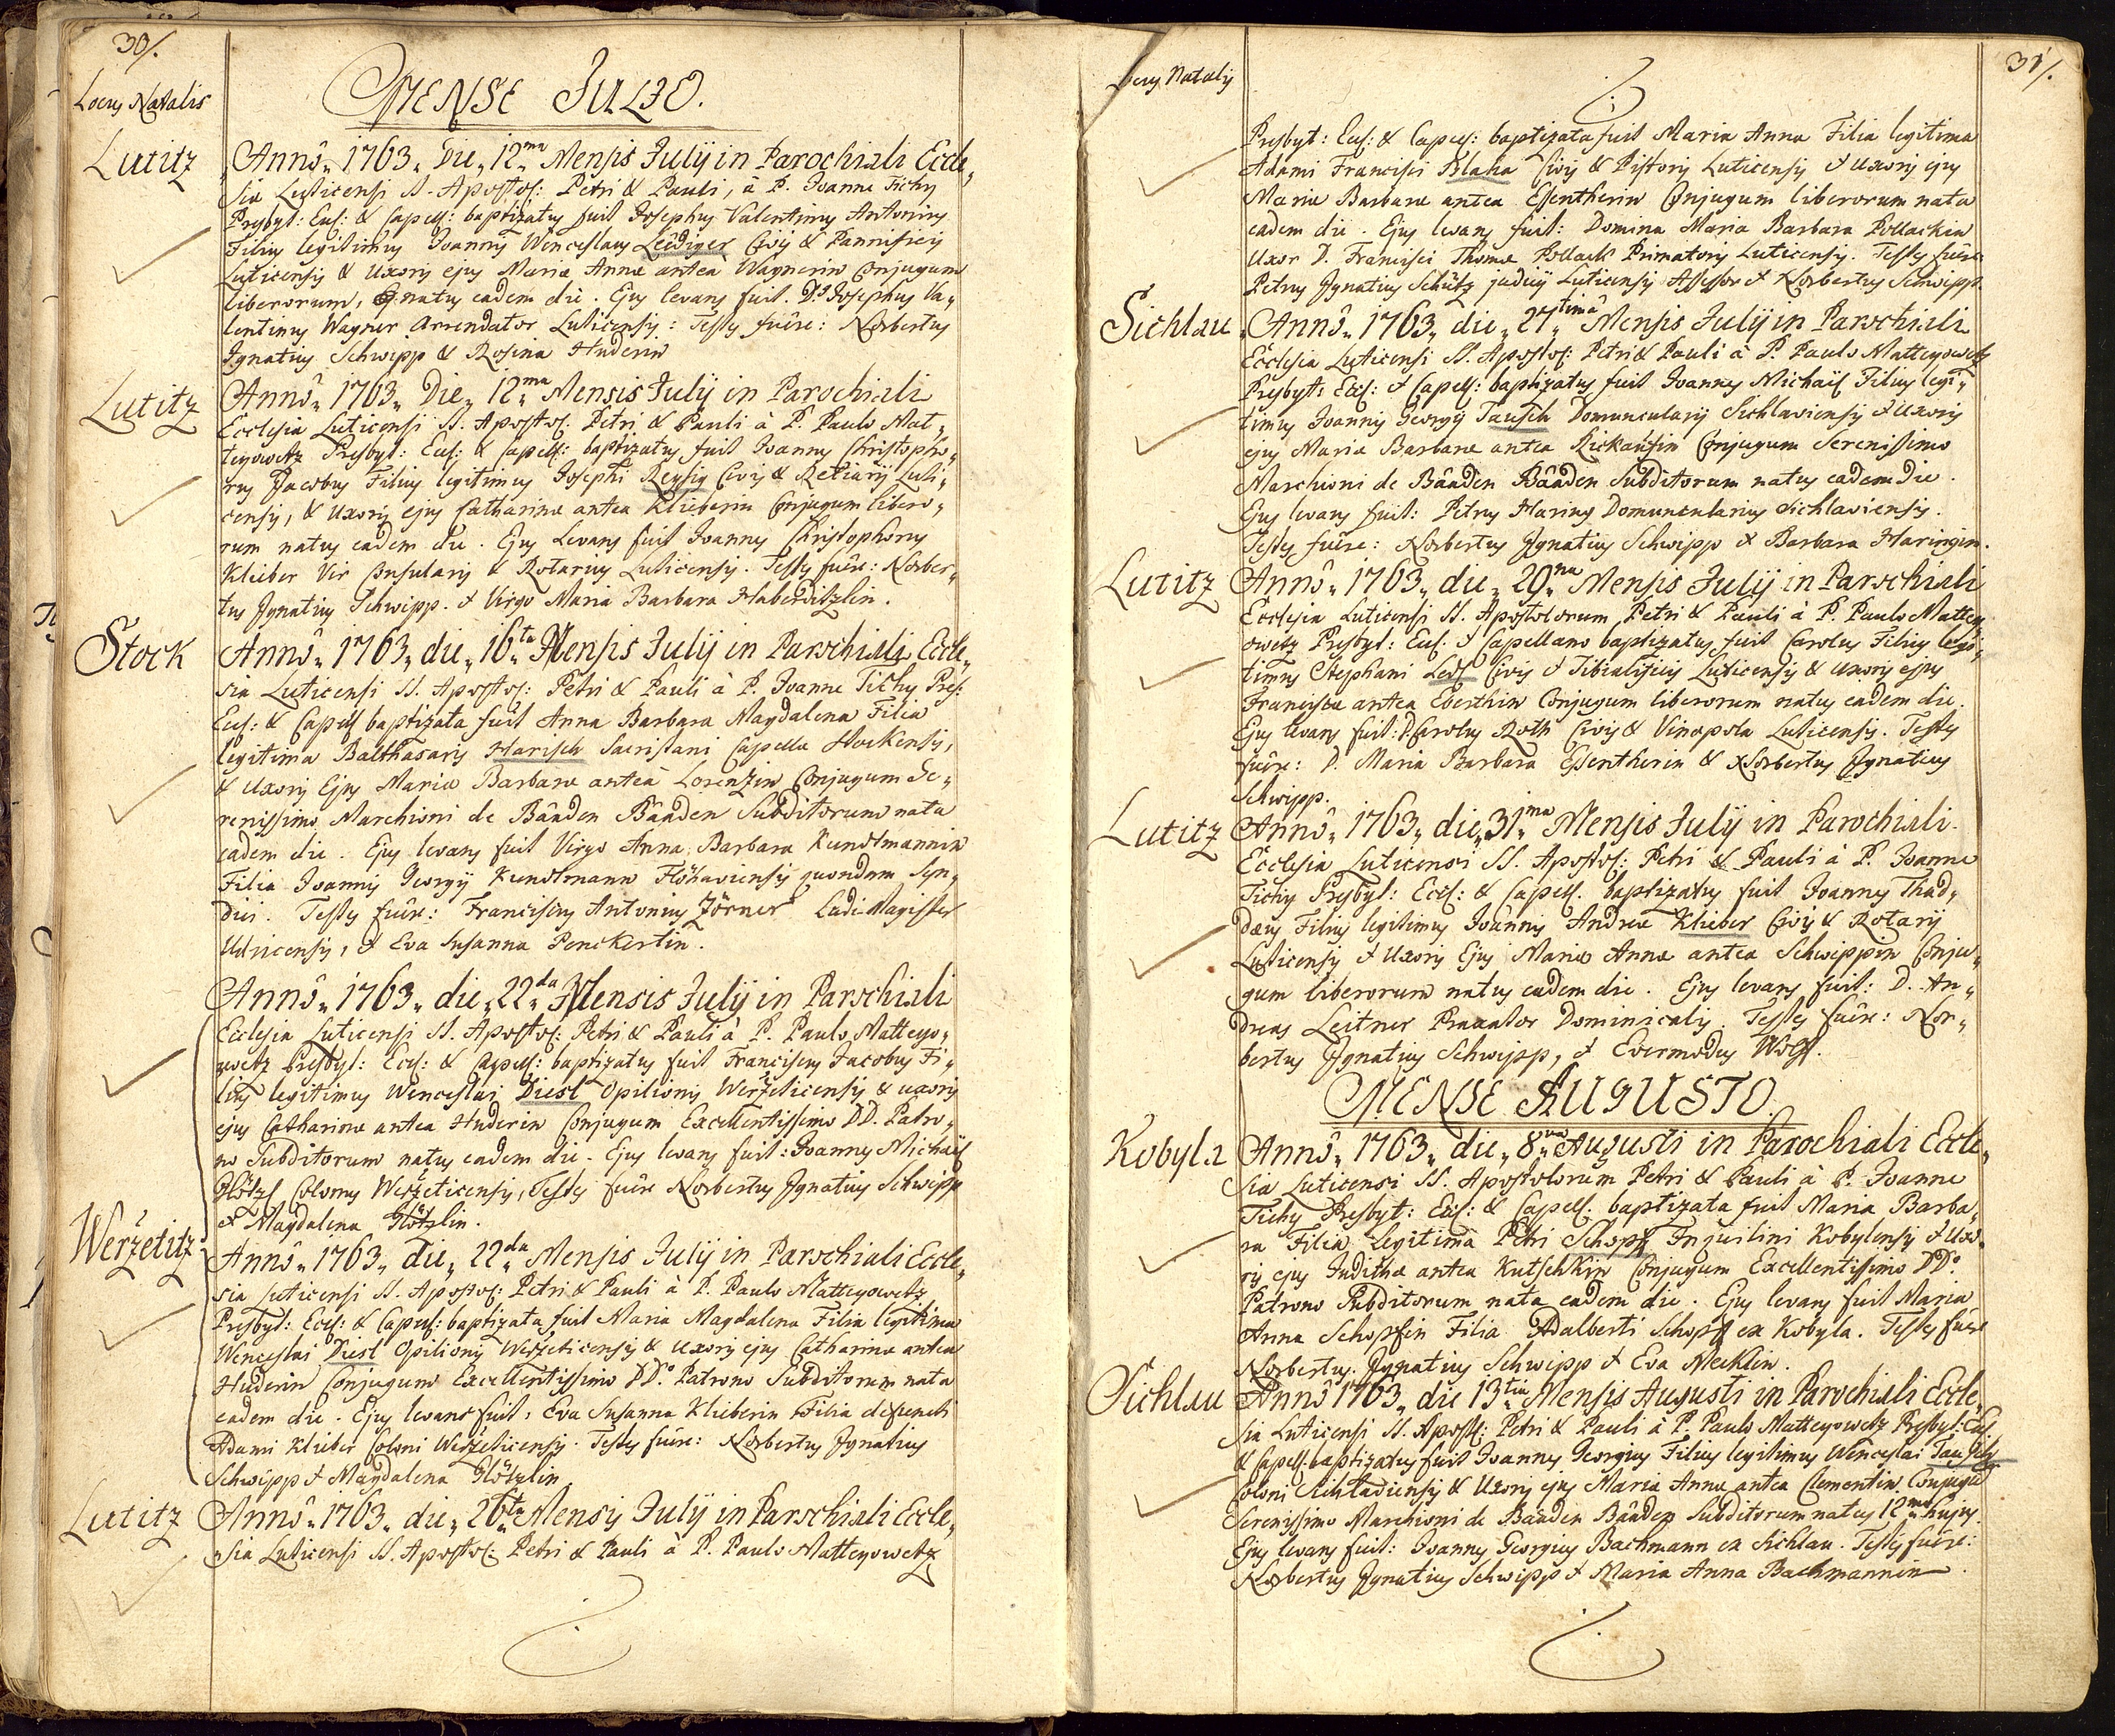 30/.
Locus Natalis
MENSE JULIO.
Lutitz
Annô„ 1763„ Die„ 12ma Mensis Julij in Parochiali Eccle„
sia Luticensi SS. Apostol: Petri & Pauli, à P. Joanne Tichy
Presbyt: Eccl: & Capell: baptizatus fuit Josephus Valentinus Antonius
Filius legitimus Joannis Wenceslaus Leüdiger Civis & Pannificis
Luticensis & Uxoris ejus Mariæ Annæ antea Wagnerin Conjugum
liberorum, natus eadem die. Ejus levans fuit. Ds Josephus Va„
lentinus Wagner Arrendator Luticensis: Testes fuêre: Norbertus
Ignatius Schwipp & Rosina Huderin
Lutitz
Annô„ 1763„ Die„ 12ma Mensis Julij in Parochiali
Ecclesia Luticensi SS. Apostol. Petri & Pauli à P. Paulo Mat„
teyowetz Presbyt: Eccl: & Capell: baptizatus fuit Joannes Christopho„
rus Jacobus Filius legitimus Josephi Reysig Civis & Retiarij Luti„
censis, & Uxoris ejus Catharinæ antea Klieberin Conjugum libero„
rum natus eadem die. Ejus Levans fuit Joannes Christophorus
Klieber Vir Consularis & Rotarius Luticensis. Testes fuêre: Norber„
tus Ignatius Schwipp. & Virgo Maria Barbara Haberditzlin.
Stock
Annô„ 1763„ die„ 16ta Mensis Julij in Parochiali Eccle„
sia Luticensi SS. Apostol: Petri & Pauli à P. Joanne Tichy Pres:
Eccl: & Capell baptizata fuit Anna Barbara Magdalena Filia
legitima Balthasaris Harisch Sacristani Capellæ Stockensis,
& Uxoris Ejus Mariæ Barbaræ anteà Lorenzin Conjugum Se„
renissimo Marchioni de Bâaden Bâaden Subditorum nata
eadem die. Ejus levans fuit Virgo Anna Barbara Kundtmannin
Filia Joannis Georgij Kundtmann Flöhaviensis quondam Syn„
dici. Testes fuêre: Franciscus Antonius Zörner Ludi-Magister
Udricensis, & Eva Susanna Penckertin.
Annô„ 1763„ die„ 22da Mensis Julij in Parochiali
Ecclesia Luticensi SS. Apostol: Petri & Pauli à P. Paulo Matteyo„
wetz Presbyt: Eccl: & Capell: baptizatus fuit Franciscus Jacobus Fi„
lius legitimus Wenceslai Diesl Opilionis Weržeticensis & uxoris
ejus Catharinæ antea Huderin Conjugum Excellentissimo DD. Patro„
no Subditorum natus eadem die. Ejus levans fuit: Joannes Michaël
Hötzl Colonus Weržeticensis, Testes fuêre Norbertus Ignatius Schwipp
& Magdalena Hötzlin.
Weržetitz
Annô„ 1763„ die„ 22da Mensis Julij in Parochiali Eccle„
sia Luticensi SS. Apostol: Petri & Pauli à P. Paulo Matteyowetz
Presbyt: Eccl: & Capell: baptizata fuit Maria Magdalena Filia legitima
Wenceslai Diesl Opilionis Weržeticensis & Uxoris ejus Catharinæ antea
Huderin Conjugum Excellentissimo DDo. Patrono Subditorum nata
eadem die. Ejus levans fuit: Eva Susanna Klieberin Filia defuncti
Adami Klieber Coloni Weržeticensis. Testes fuêre: Norbertus Ignatius
Schwipp & Magdalena Hötzlin
Lutitz
Annô„ 1763„ die„ 26ta Mensis Julij in Parochiali Eccle„
sia Luticensi SS. Apostol: Petri & Pauli à P. Paulo Matteyowetz
31/.
Locus Natalis
Presbyt: Eccl: & Capell: baptizata fuit Maria Anna Filia legitima
Adami Francisci Blaha Civis & Pistoris Luticensis & Uxoris ejus
Mariæ Barbaræ antea Essentherin Conjugum liberorum nata
eadem die. Ejus levans fuit: Domina Maria Barbara Pollackin
Uxor D. Francisci Thomæ Pollack Primatoris Luticensis. Testes fuêre
Petrus Ignatius Schütz judicij Luticensis Assessor & Norbertus Schwipp.
Sichlau
Annô„ 1763„ die„ 27timâ Mensis Julij in Parochiali
Ecclesia Luticensi SS. Apostol: Petri & Pauli à P. Paulo Matteyowetz
Presbyt: Eccl: & Capell: baptizatus fuit Joannes Michaël Filius legi„
timus Joannis Georgij Tausch Domuncularij Sichlaviensis & Uxoris
ejus Maria Barbaræ antea Rickausin Conjugum Serenissimo
Marchioni de Bâaden Bâaden Subditorum natus eadem Die.
Ejus levans fuit: Petrus Haring Domuncularius Sichlaviensis.
Testes fuêre: Norbertus Ignatius Schwipp & Barbara Haringin.
Lutitz
Annô„ 1763„ die„ 29na Mensis Julij in Parochiali
Ecclesia Luticensi SS. Apostolorum Petri & Pauli à P. Paulo Mattey„
owetz Presbyt: Eccl. & Capellano baptizatus fuit Carolus Filius legi„
timus Stephani Civis & Tibialificis Luticensis & uxoris ejus
Franciscæ antea Eberthin Conjugum liberorum natus eadem die.
Ejus levans fuit: D. Carolus Roth Civis & Vinopola Luticensis. Testes
fuêre: D. Maria Barbara Essentherin & Norbertus Ignatius
Schwipp.
Lutitz
Annô„ 1763„ die„ 31ma Mensis Julij in Parochiali
Ecclesia Luticensi SS. Apostol: Petri & Pauli à P. Joanne
Tichy Presbyt: Eccl: & Capell. baptizatus fuit Joannes Thad„
dæus Filius legitimus Joannis Andreæ Klieber Civis & Rotarij
Luticensis & Uxoris Ejus Mariæ Annæ antea Schwippin Conju„
gum liberorum natus eadem die. Ejus levans fuit: D. An„
dreas Leitner Braxator Dominicalis. Testes fuêre: Nor„
bertus Ignatius Schwipp, & Evermodus Wolf.
MENSE AUGUSTO.
Kobyla
Annô„ 1763„ die„ 8va Augusti in Parochiali Eccle„
sia Luticensi SS. Apostolorum Petri & Pauli à P. Joanne
Tichy Presbyt: Eccl: & Capell. baptizata fuit Maria Barba„
ra Filia Legitima Petri Schopf Inquilini Kobylensis & Uxo„
ris ejus Judithæ antea Kutschkin Conjugum Excellentissimo DDo.
Patrono Subditorum nata eadem die. Ejus levans fuit Maria
Anna Schopfin Filia Adalberti Schopf ex Kobyla. Testes fuêre
Norbertus Ignatius Schwipp & Eva Mecklin.
Sichlau
Annô 1763„ die 13tia Mensis Augusti in Parochiali Eccle„
sia Luticensi SS. Apostl: Petri & Pauli à P. Paulo Matteyowetz Presbyt: Eccl.
& Capell. baptizatus fuit Joannes Georgius Filius legitimus Wenceslai Tausch
Coloni Sichlaviensis & Uxoris ejus Maria Annæ antea Clementin Conjugum
Serenissimo Marchioni de Bâaden Bâaden Subditorum natus 12ma hujus.
Ejus levans fuit: Joannes Georgius Bachmann ex Sichlau. Testes fuêre:
Norbertus Ignatius Schwipp & Maria Anna Bachmannin